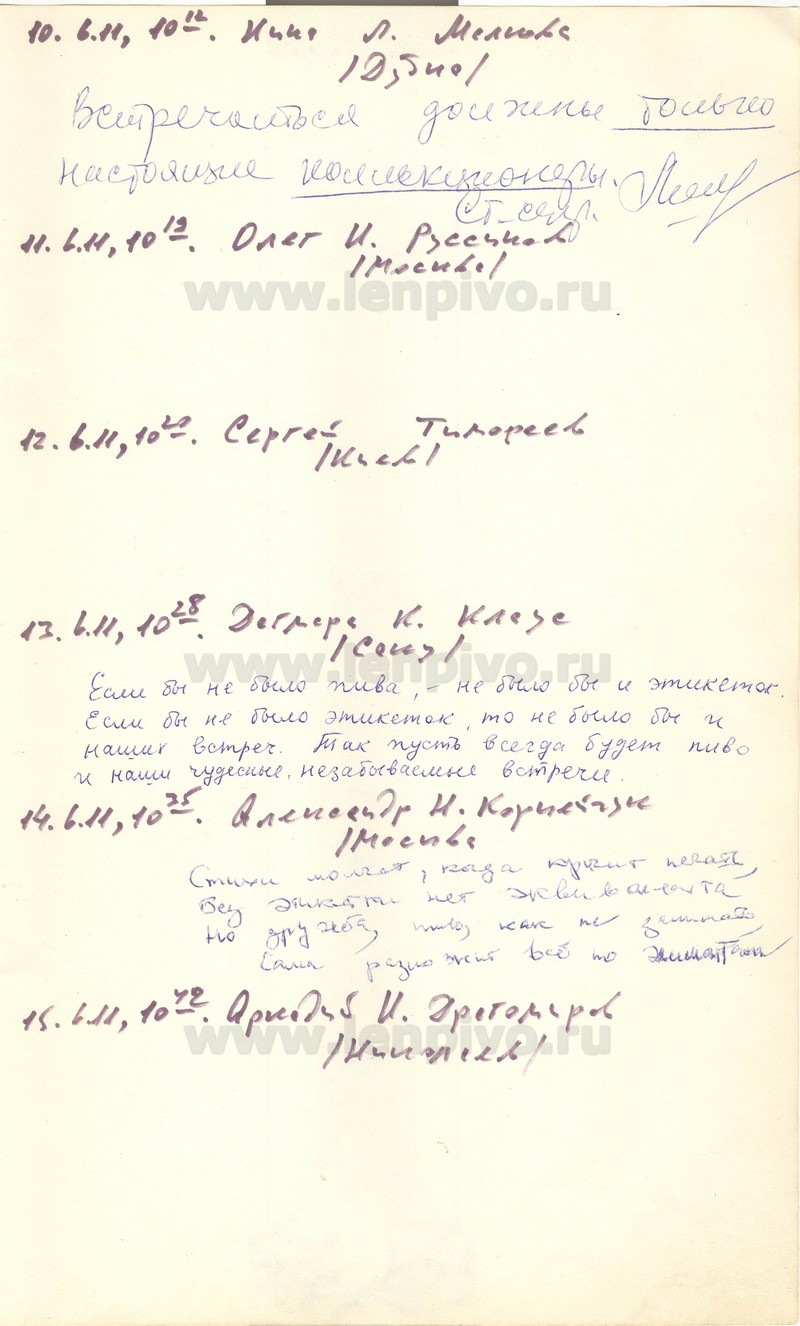 10. 6.11, 10 12. Нина Л. Малкова
/Дубна/
Встречаться должны только
настоящие коллекционеры.
11. 6.11, 10 19. Олег И. Руссинов
/Москва/
www.lenpivo.ru
12. 6.11, 10 20. Сергей Тимофеев
/Киев/
13. 6.11, 10 28. Дагмара К. Клаус
/Союз/
www.lenpivo.ru
Если бы не было пива, – не было бы и этикеток.
Если бы не было этикеток, то не было бы и
наших встреч. Так пусть всегда будет пиво
и наши чудесные, незабываемые встречи.
14. 6.11, 10 35. Александр Н. Корнейчук
/Москва
Стихи молчат, когда кричит печать,
Без этикетки нет эквивалента
Но дружба, пиво, как не
Сама разложит всё по
15. 6.11, 10 42. Аркадий И. Драгомиров
www.lenpivo.ru
/Никополь/